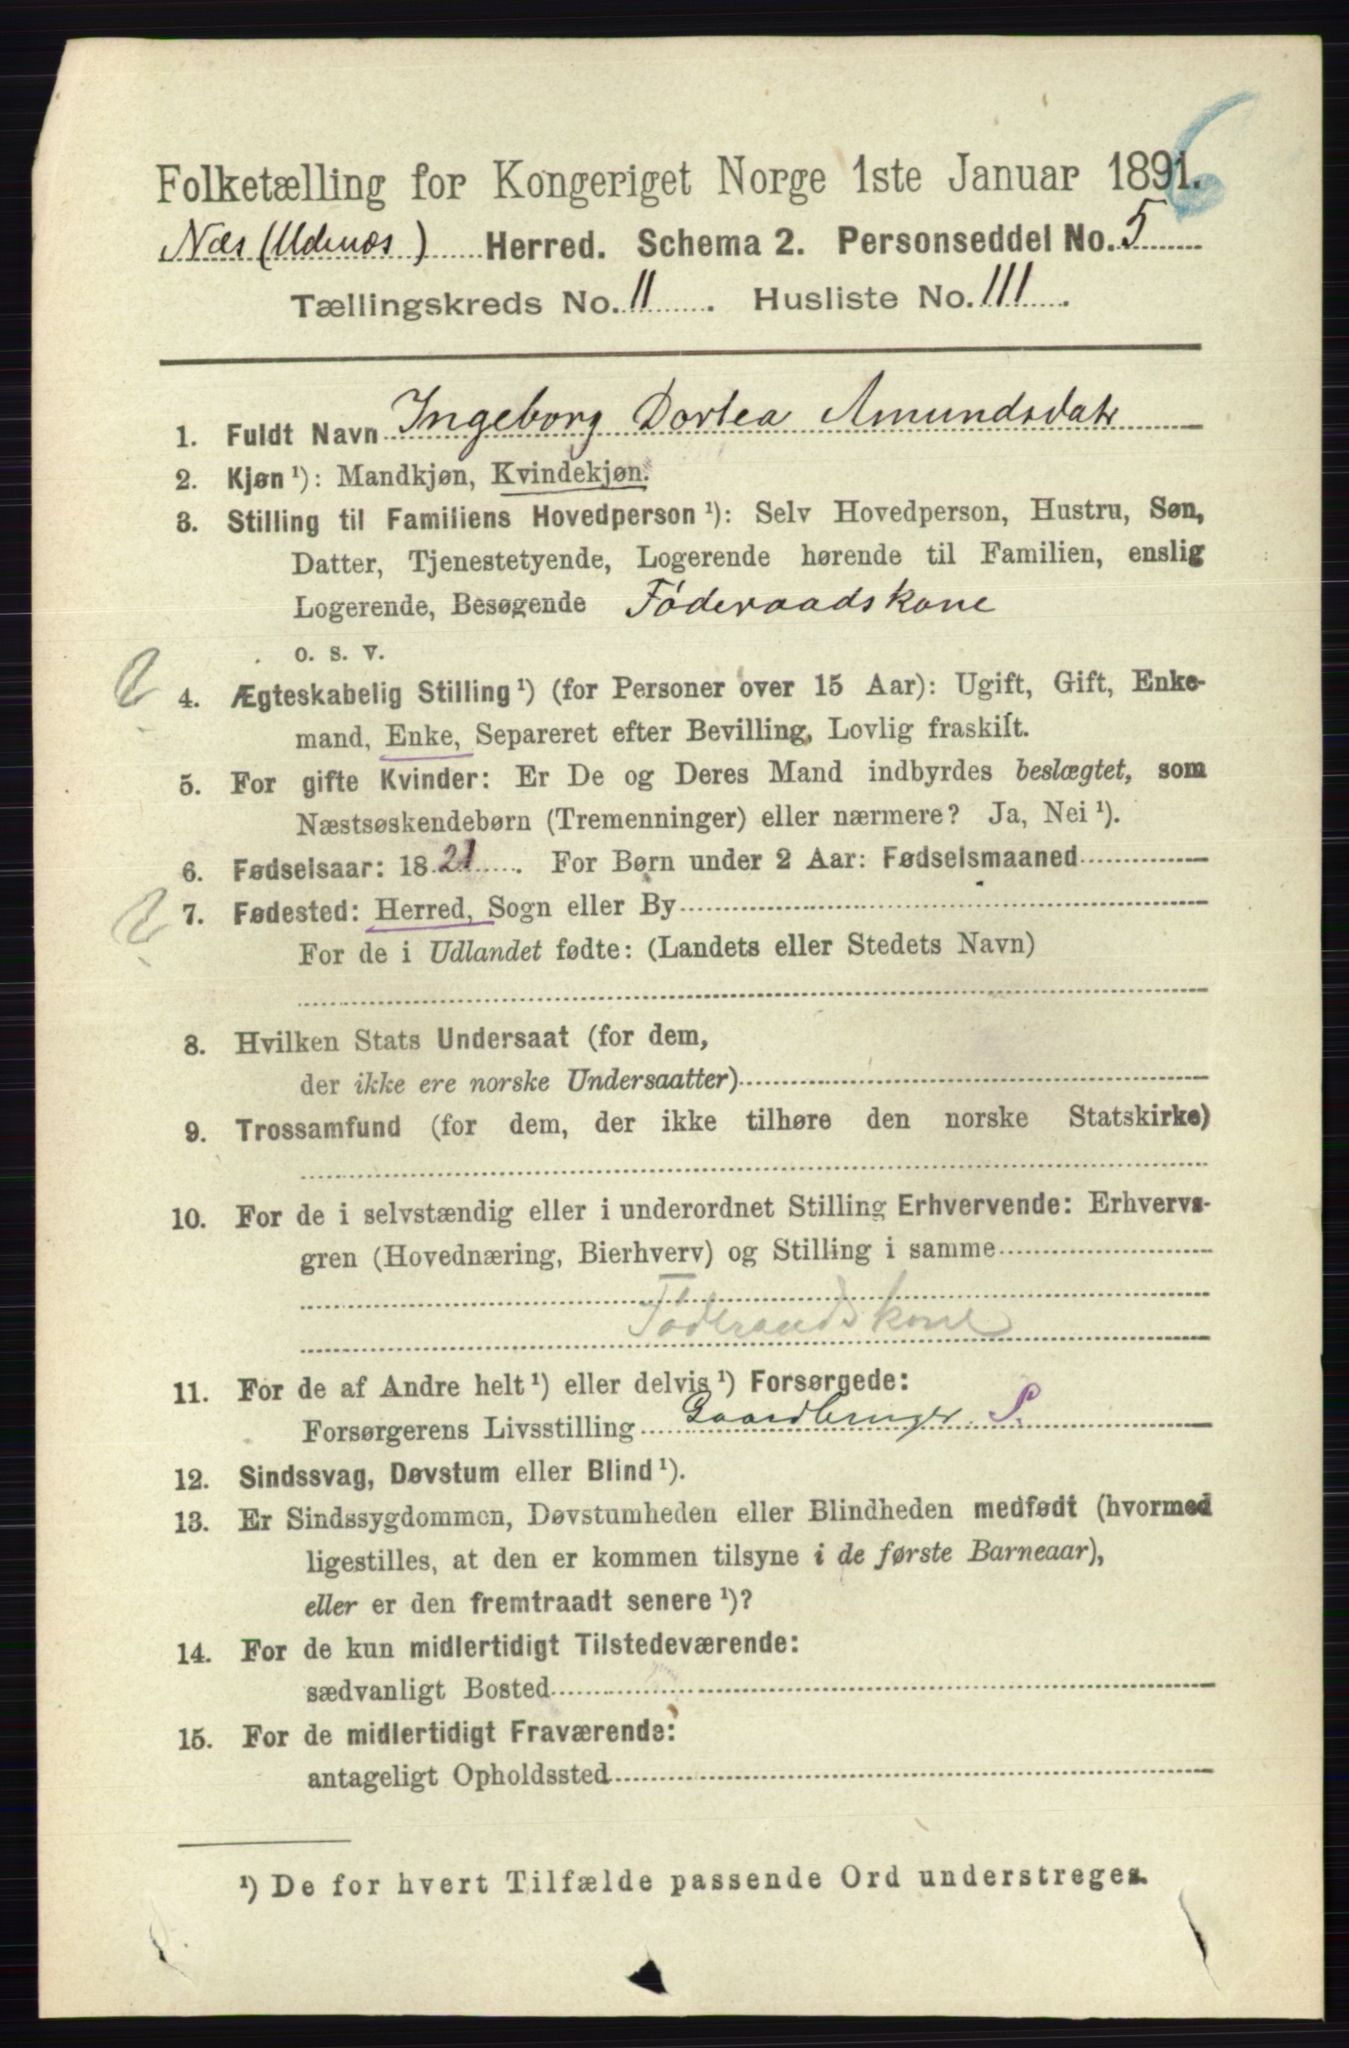 6
Folketælling for Kongeriget Norge 1ste Januar 1891.
Næs (Udenæs) Herred. Schema 2. Personseddel No. 5
Tællingskreds No. 11. Husliste No. 111.
1. Fuldt Navn Ingeborg Dortea Amundsdatr
2. Kjøn ¹): Mandkjøn, Kvindekjøn.
3. Stilling til Familiens Hovedperson ¹): Selv Hovedperson, Hustru, Søn,
Datter, Tjenestetyende, Logerende hørende til Familien, enslig
Logerende, Besøgende Føderaadskone
o. s. v.
4. Ægteskabelig Stilling ¹) (for Personer over 15 Aar): Ugift, Gift, Enke-
mand, Enke, Separeret efter Bevilling, Lovlig fraskilt.
5. For gifte Kvinder: Er De og Deres Mand indbyrdes beslægtet, som
Næstsøskendebørn (Tremenninger) eller nærmere? Ja, Nei ¹).
6. Fødselsaar: 1821. For Børn under 2 Aar: Fødselsmaaned
7. Fødested: Herred, Sogn eller By
For de i Udlandet fødte: (Landets eller Stedets Navn)
8. Hvilken Stats Undersaat (for dem,
der ikke ere norske Undersaatter)
9. Trossamfund (for dem, der ikke tilhøre den norske Statskirke)
10. For de i selvstændig eller i underordnet Stilling Erhvervende: Erhvervs-
gren (Hovednæring, Bierhverv) og Stilling i samme
Føderaadskone
11. For de af Andre helt ¹) eller delvis ¹) Forsørgede:
Forsørgerens Livsstilling Gaardbruger. S.
12. Sindssvag, Døvstum eller Blind ¹).
13. Er Sindssygdommen, Døvstumheden eller Blindheden medfødt (hvormed
ligestilles, at den er kommen tilsyne i de første Barneaar),
eller er den fremtraadt senere ¹)?
14. For de kun midlertidigt Tilstedeværende:
sædvanligt Bosted
15. For de midlertidigt Fraværende:
antageligt Opholdssted
¹) De for hvert Tilfælde passende Ord understreges.